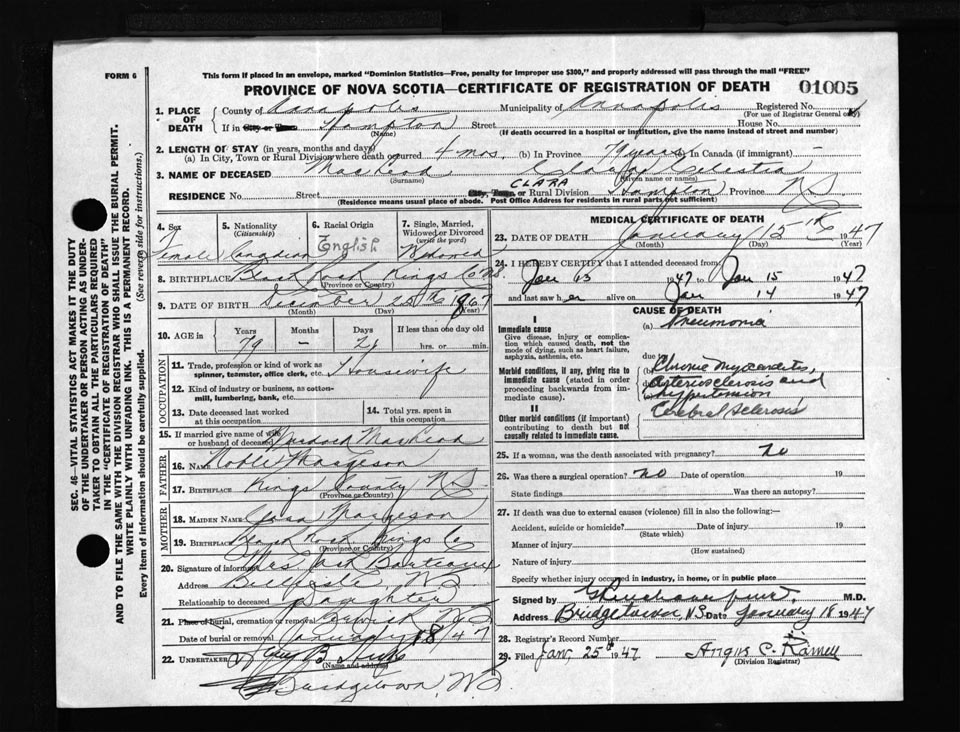 This form if placed in an envelope, marked "Dominion Statistics—Free, penalty for improper use $300," and properly addressed will pass through the mail "FREE"
FORM 6
PROVINCE OF NOVA SCOTIA—CERTIFICATE OF REGISTRATION OF DEATH
01005
1. PLACE OF DEATH
County of Annapolis Municipality of Annapolis Registered No.
(For use of Registrar General only)
If in City or Town Hampton Street House No.
(Name) (If death occurred in a hospital or institution, give the name instead of street and number)
2. LENGTH OF STAY (in years, months and days)
(a) In City, Town or Rural Division where death occurred 4 mos. (b) In Province 79 years (c) In Canada (if immigrant) -
3. NAME OF DECEASED Celestia
(Surname) (Given name or names)
CLARA
RESIDENCE No. Street City, Town, or Rural Division Hampton Province NS
(Residence means usual place of abode. Post Office Address for residents in rural parts not sufficient)
4. Sex Female
5. Nationality (Citizenship) Canadian
6. Racial Origin English
7. Single, Married, Widowed or Divorced (write the word) Widowed
8. BIRTHPLACE Black Rock Kings Co NS
(Province or Country)
9. DATE OF BIRTH December 25th 1867
(Month) (Day) (Year)
10. AGE in Years Months Days If less than one day old
79 – 21 hrs. or min.
OCCUPATION
11. Trade, profession or kind of work as spinner, teamster, office clerk, etc. Housewife
12. Kind of industry or business, as cotton-mill, lumbering, bank, etc.
13. Date deceased last worked at this occupation
14. Total yrs. spent in this occupation
15. If married give name of wife or husband of deceased Murdoch
FATHER
16. NAME Noble Margeson
17. BIRTHPLACE Kings County NS
(Province or Country)
MOTHER
18. MAIDEN NAME Margeson
19. BIRTHPLACE Black Rock Kings Co
(Province or Country)
20. Signature of informant Mrs. Jack
Address NS
Relationship to deceased Daughter
21. Place of burial, cremation or removal Berwick NS
Date of burial or removal January 18 47
22. UNDERTAKER B
(Name and address)
Bridgetown, N.S.
MEDICAL CERTIFICATE OF DEATH
23. DATE OF DEATH January 15th 1947
(Month) (Day) (Year)
24. I HEREBY CERTIFY that I attended deceased from
Jan 13 1947 to Jan 15 1947
and last saw her alive on Jan 14 1947
CAUSE OF DEATH
I
Immediate cause (a) Pneumonia
Give disease, injury or complication which caused death, not the mode of dying, such as heart failure, asphyxia, asthenia, etc.
due to
Morbid conditions, if any, giving rise to immediate cause (stated in order proceeding backwards from immediate cause).
(b) Chronic myocarditis,
arteriosclerosis and
hypertension
II
Other morbid conditions (if important) contributing to death but not causally related to immediate cause.
Cerebral sclerosis
25. If a woman, was the death associated with pregnancy? no
26. Was there a surgical operation? no Date of operation 19
State findings Was there an autopsy?
27. If death was due to external causes (violence) fill in also the following:—
Accident, suicide or homicide? Date of injury 19
(State which)
Manner of injury
(How sustained)
Nature of injury
Specify whether injury occurred in industry, in home, or in public place
Signed by M.D.
Address Bridgetown, N.S. Date January 18 1947
28. Registrar's Record Number
29. Filed Jan, 25th 1947 Angus C.
(Division Registrar)
SEC. 46—VITAL STATISTICS ACT MAKES IT THE DUTY
OF THE UNDERTAKER OR PERSON ACTING AS UNDER-
TAKER TO OBTAIN ALL THE PARTICULARS REQUIRED
IN THE "CERTIFICATE OF REGISTRATION OF DEATH"
AND TO FILE THE SAME WITH THE DIVISION REGISTRAR WHO SHALL ISSUE THE BURIAL PERMIT.
WRITE PLAINLY WITH UNFADING INK. THIS IS A PERMANENT RECORD.
Every item of information should be carefully supplied. (See reverse side for instructions.)